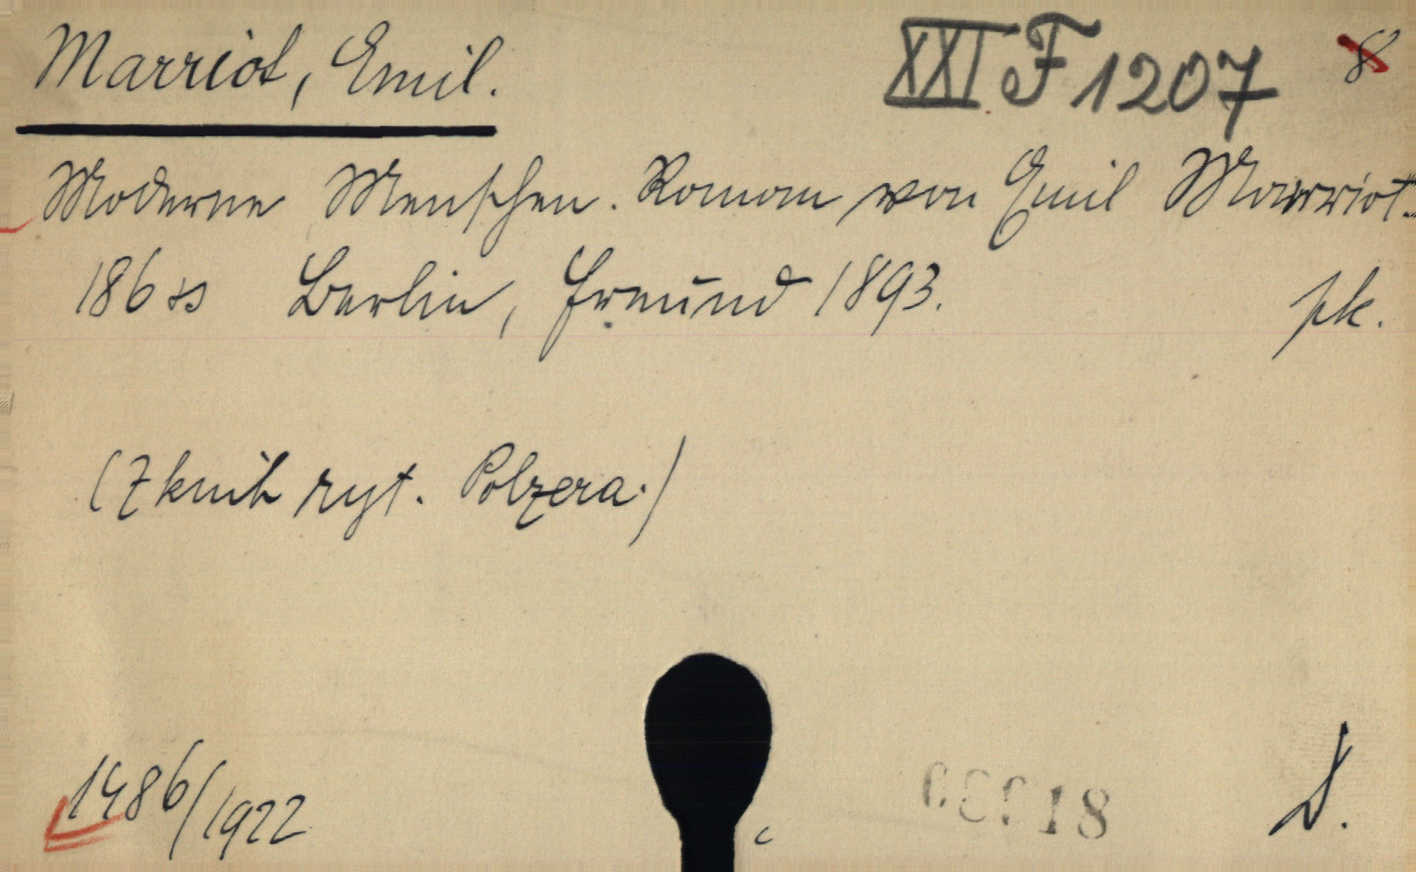 Marriot, Emil.
XXI F 1207
8°
Moderne Menschen. Roman von Emil Marriot.
186 ss Berlin, Freund 1893.
pk.
(Z knih ryt. Polzera.)
1486/1922
c
00018